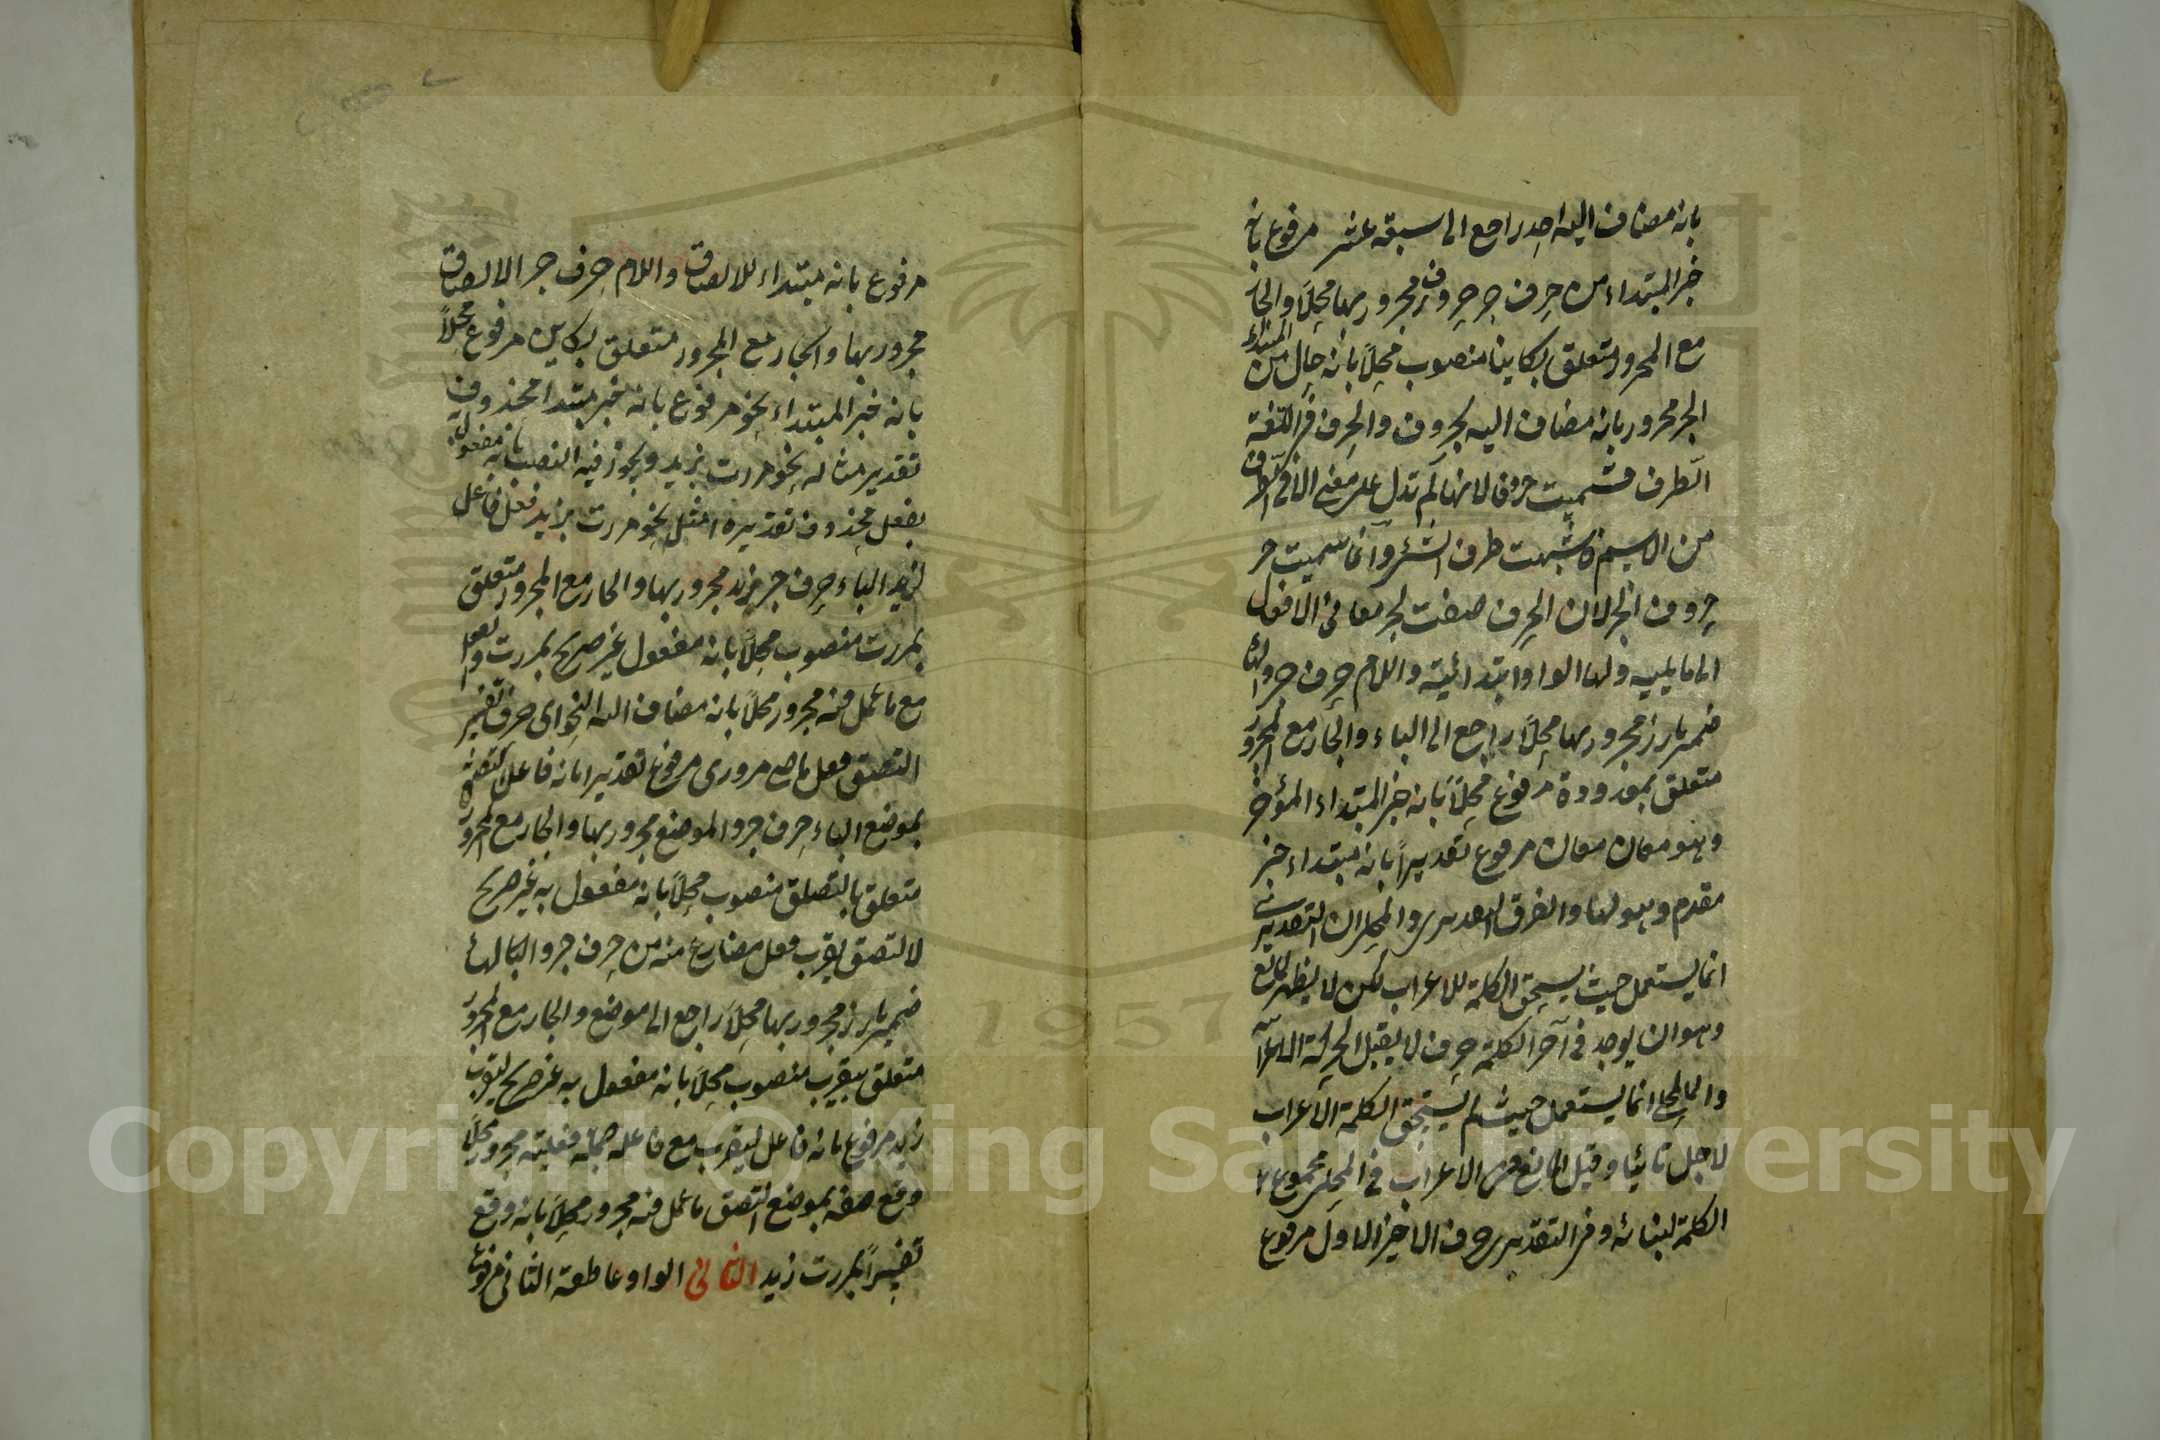 بانه مضاف اليه احد راجع الى سبعة عشر مرفوع بانه
خبر المبتداء من حرف جر حروف مجرور بها محلاً والجار
مع المجرور متعلق بكاينا منصوب محلاً بانه حال من المبتداء
الجر مجرور بانه مضاف اليه لحروف والحرف في اللغة
الطرف فسميت حروفا لانها لم تدل على معنى الا في الطرف
من الاسم فاشبهت طرف الشئ وانما سميت حر
حروف الجر لان الحرف صفت لجر معانى الافعال
الى ما يليه ولها الواو ابتدائية واللام حرف جر والهاء
ضمير بارز مجرور بها محلاً راجع الى الباء والجار مع المجرور
متعلق بمعدودة مرفوع محلاً بانه خبر المبتداء المؤخر
وهو معان معان مرفوع تقديراً بانه مبتداء خبر
مقدم وهو لها والفرق التقديرى والمحلى ان التقديرى
انما يستعمل حيث يستحق الكلمة للاعراب لكن لا يظهر لمانع
وهو ان يوجد فى آخر الكلمة حرف لا يقبل الحركة الاعرابية
والمحلى انما يستعمل حيث لم يستحق الكلمة الاعراب
لاجل بنائها وقيل المانع من الاعراب فى المحلى مجموع
الكلمة لبنائه وفى التقديرى حرف الاخير الاول مرفوع
مرفوع بانه مبتداء للالصاق واللام حرف جر الالصاق
مجرور بها والجار مع المجرور متعلق بكاين مرفوع محلاً
بانه خبر المبتداء نحو مرفوع بانه خبر مبتدا محذوف
تقديره مثاله نحو مررت بزيد ويجوز فيه النصب بانه مفعول به
بفعل محذوف تقديره امثل نحو مررت بزيد فعل فاعل
بزيد الباء حرف جر زيد مجرور بها والجار مع المجرور متعلق
بمررت منصوب محلاً بانه مفعول غير صريح بمررت
مع ما عمل فيه مجرور محلاً بانه مضاف اليه لنحو اى حرف تفسير
التصق فعل ماض مرورى مرفوع تقديرا بانه فاعل التصق
بموضع الباء حرف جر والموضع مجرور بها والجار مع المجرور
متعلق بالتصق منصوب محلاً بانه مفعول به غير صريح
لالتصق يقرب فعل مضارع منه من حرف جر والهاء
ضمير بارز مجرور بها محلاً راجع الى موضع والجار مع المجرور
متعلق بيقرب منصوب محلاً بانه مفعول به غير صريح ليقرب
زيد مرفوع بانه فاعل ليقرب مع فاعله جملة فعلية مجرور محلاً
وقع صفة بموضع التصق ما عمل فيه مجرور محلاً بانه وقع
تفسيراً بمررت زيد الثانى الواو عاطفة الثانى مرفوع
Copyright © King Saud University
1957